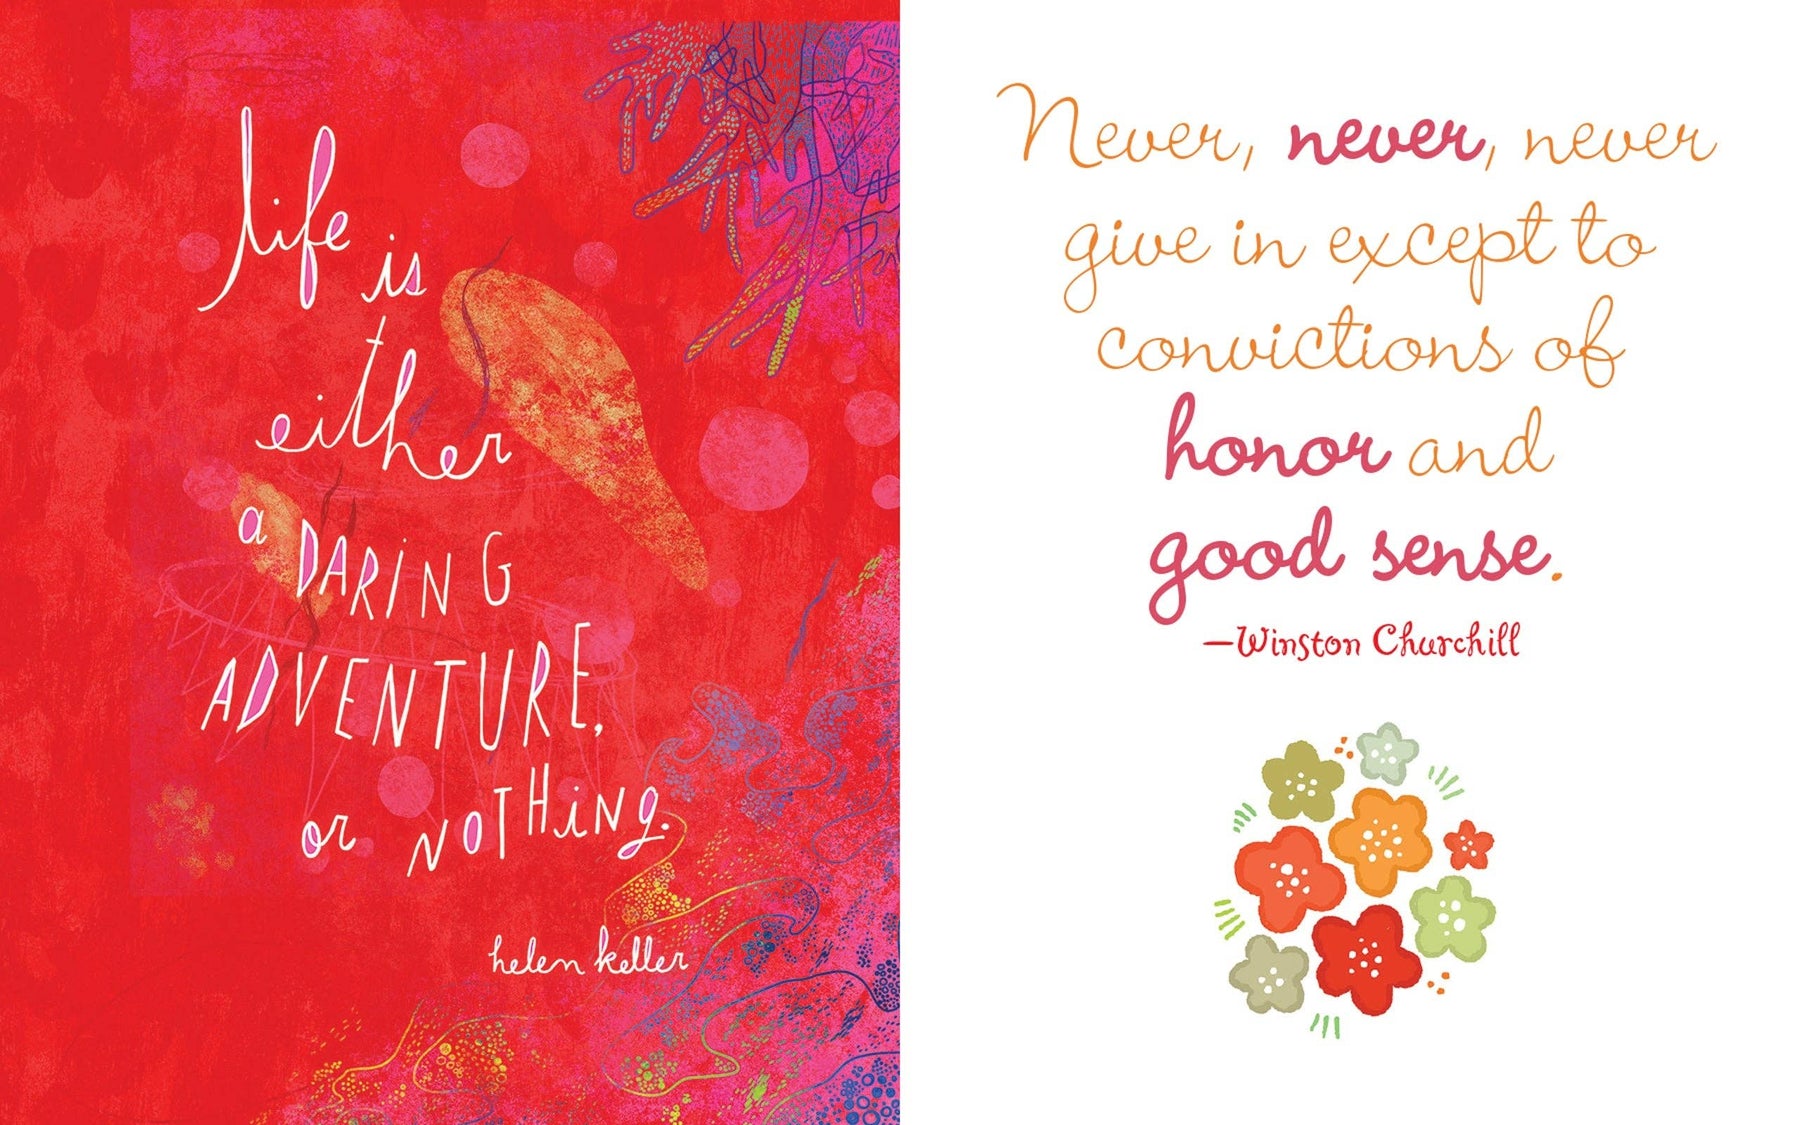 life is
either
a DARING
ADVENTURE,
or NOTHING.
helen keller
Never, never, never
give in except to
convictions of
honor and
good sense.
—Winston Churchill